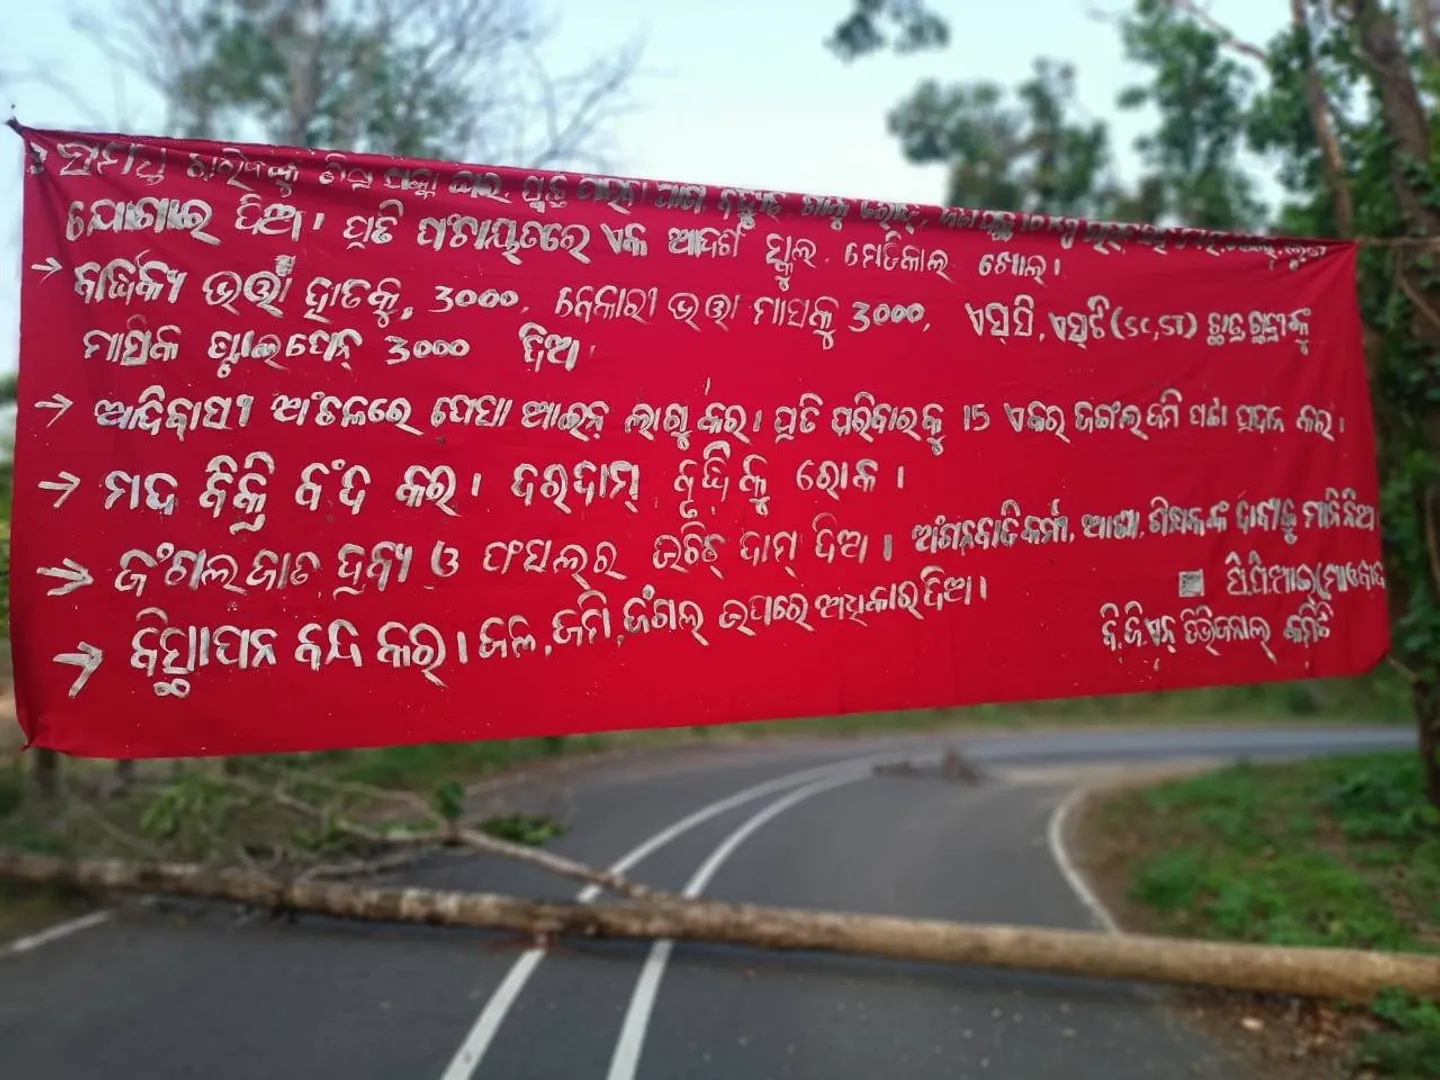 ସମସ୍ତ ଗରିବଙ୍କୁ ପକ୍କା ଘର,
ଯୋଗାଇ ଦିଅ। ପ୍ରତି ପଂଚାୟତରେ ଏକ ଆଦର୍ଶ ସ୍କୁଲ, ମେଡିକାଲ ଖୋଲ।
→ ବାର୍ଦ୍ଧକ୍ୟ ଭତ୍ତା ହାତକୁ, 3000, ବେକାରୀ ଭତ୍ତା ମାସକୁ 3000, ଏସ୍‌ସି, ଏସ୍‌ଟି (SC,ST) ଛାତ୍ରଛାତ୍ରୀଙ୍କୁ
ମାସିକ ଷ୍ଟାଇପେନ୍ 3000 ଦିଅ।
→ ଆଦିବାସୀ ଅଂଚଳରେ ପେସା ଆଇନ୍ ଲାଗୁ କର। ପ୍ରତି ପରିବାରକୁ 15 ଏକର ଜଙ୍ଗଲ ଜମି ପଟ୍ଟା ପ୍ରଦାନ କର।
→ ମଦ ବିକ୍ରି ବଂଦ କର। ଦରଦାମ୍ ବୃଦ୍ଧିକୁ ରୋକ।
→ ଜଂଗଲଜାତ ଦ୍ରବ୍ୟ ଓ ଫସଲ୍‌ର ଉଚିତ୍ ଦାମ୍ ଦିଅ। ଅଂଗନବାଡିକର୍ମୀ, ଆଶା, ଶିକ୍ଷକଙ୍କ ଦାବୀକୁ ମାନିନିଅ
→ ବିସ୍ଥାପନ ବନ୍ଦ କର। ଜଳ, ଜମି, ଜଂଗଲ ଉପରେ ଅଧିକାର ଦିଅ।
ସି.ପି.ଆଇ(ମାଓବାଦୀ
ବି.ଜି.ଏନ୍ ଡିଭିଜନାଲ୍ କମିଟି